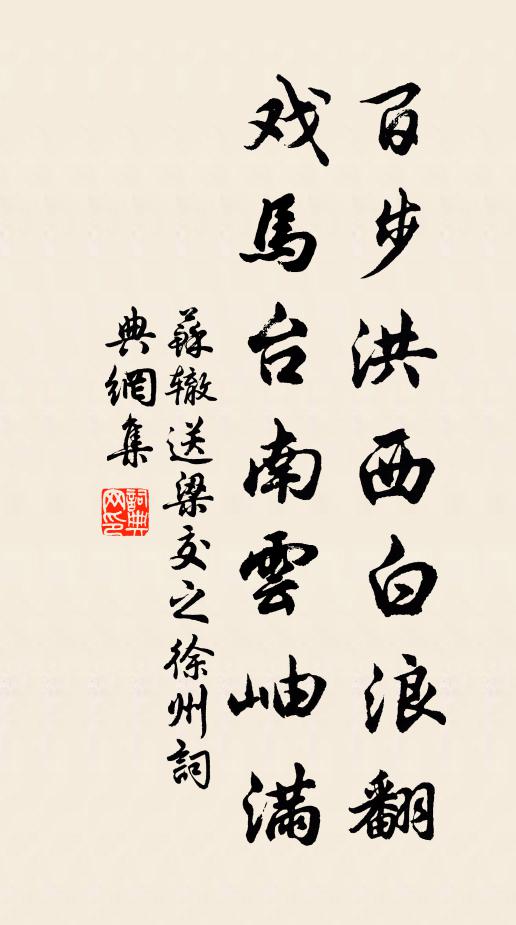 百步洪西白浪翻
戏馬台南雲岫满
蘇辙送梁交之徐州詞
典網集
詞典网印